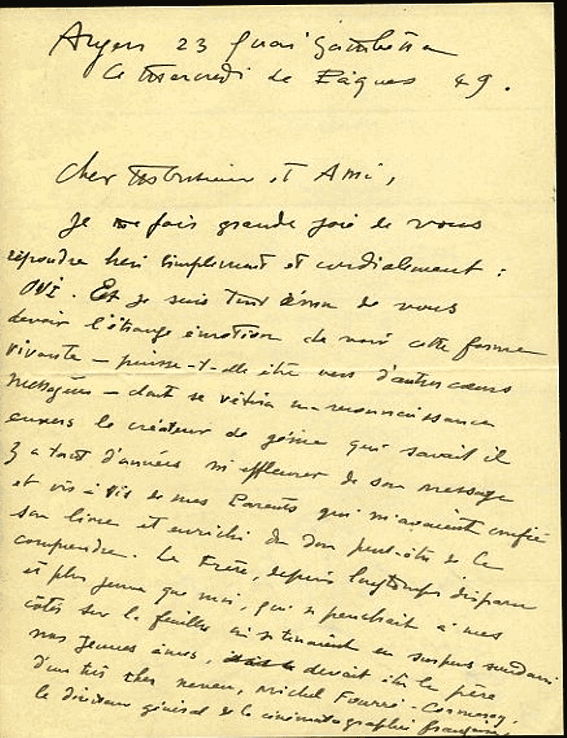 Angers 23 Quai Gambetta
Ce Mercredi de Pâques 49.
Cher Monsieur et Ami,
Je me fais grande joie de vous
répondre bien simplement et cordialement :
OUI. Et je suis tout ému de vous
devoir l'étrange émotion de voir cette forme
vivante – puisse-t-elle être vers d'autres cœurs
messagère – dont se vêtira ma reconnaissance
envers le créateur de génie qui savait il
y a tant d'années m'effleurer de son message
et vis à vis de mes Parents qui m'avaient confié
son livre et enrichi du don peut-être de le
comprendre. Le Frère, depuis longtemps disparu
et plus jeune que moi, qui se penchait à mes
côtés sur la feuille où se tenaient en suspens
nos jeunes âmes, devait être le père
d'un très cher neveu, Michel Fourré-Cormeray,
le directeur général de la cinématographie française